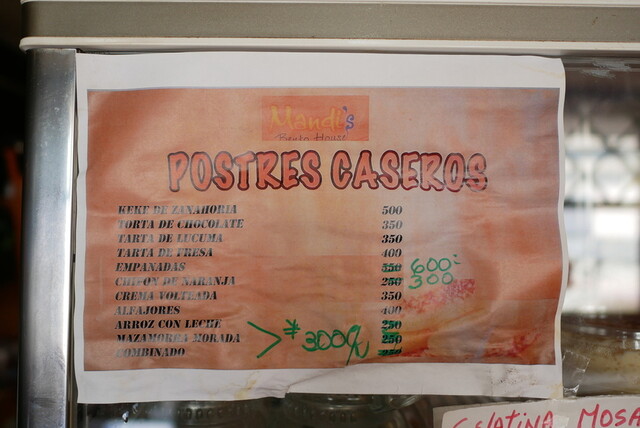 Mandi's
Bento House
POSTRES CASEROS
KEKE DE ZANAHORIA 500
TORTA DE CHOCOLATE 350
TARTA DE LUCUMA 350
TARTA DE FRESA 400
EMPANADAS 550 600
CHIFON DE NARANJA 250 300
CREMA VOLTEADA 350
ALFAJORES 400
ARROZ CON LECHE 250
MAZAMORRA MORADA 250 > ¥300
COMBINADO 250
GELATINA MOSA